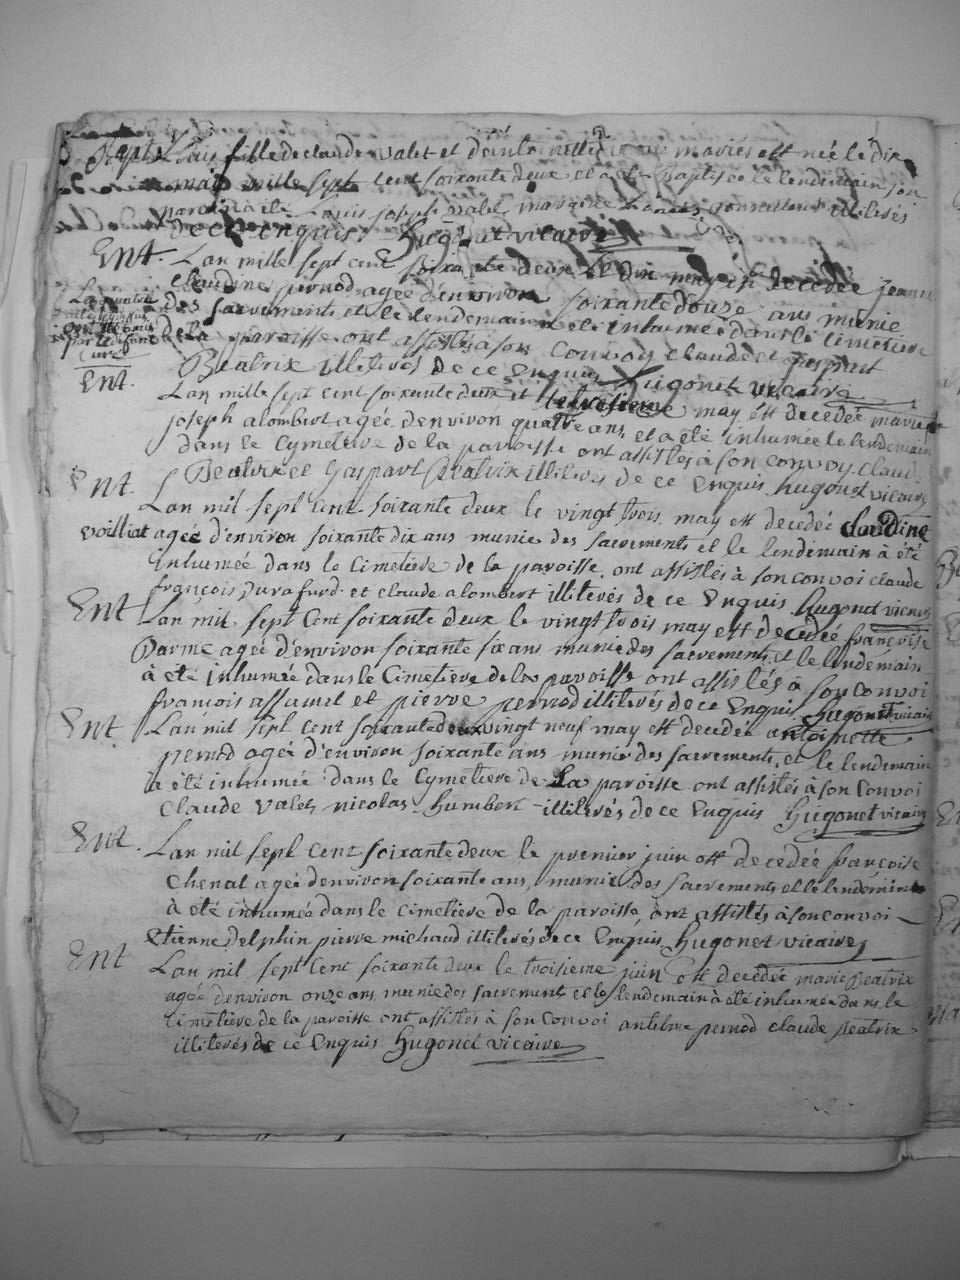 Bapt. Louis fille de claude valet et d'antoinette mariés est née le dix
may mille sept cent soixante deux et a été Baptisée le lendemain son
parein a été Louis joseph valet, mareine illiterés
de ce enquis. hugonet vicaire
Ent. Lan mille sept cent soixante deux le dix may est decedée jeanne
claudine pernod agée d'environ soixante douse ans munie
des sacrements et le lendemain a été inhumée dans le cimetiere
de la paroisse ont assistés a son convoy claude et gaspart
Beatrix illiterés de ce Enquis hugonet vicaire
Ent. Lan mille sept cent soixante deux et le may est decedée marie
joseph alombert agée denviron quatre ans, et a été inhumée le lendemain
dans le Cymetiere de la paroisse ont assistés à son convoy Claude
Beatrix et Gaspart Beatrix illiterés de ce Enquis hugonet vicaire
Ent. Lan mil sept cent soixante deux le vingt trois may est decedée claudine
voilliat agée d'environ soixante dix ans munie des sacrements et le lendemain à été
inhumée dans le cimetiere de la paroisse. ont assistés à son convoi claude
françois Durafurd et claude alombert illiterés de ce Enquis hugonet vicaire
Ent Lan mil sept Cent soixante deux le vingt trois may est decedée françoise
Parme agée d'environ soixante six ans munie des sacrements et le lendemain
à été inhumée dans le Cimetiere de la paroisse ont assistés à son convoi
françois et pierre pernod illiterés de ce Enquis hugonet vicaire
Ent. Lan mil sept cent soixante deux vingt neuf may est decedée antoinette
pernod agée d'environ soixante ans munie des sacrements, et le lendemain
a été inhumée dans le Cymetiere de La paroisse ont assistés à son Convoi
Claude valet, nicolas humbert illiterés de ce Enquis hugonet vicaire
Ent. Lan mil sept cent soixante deux le premier juin est decedée françoise
Chenal agée denviron soixante ans, munie des sacrements et le lendemain
à été inhumée dans le cimetiere de la paroisse, ont assistés à son convoi
Etienne delphin pierre michaud illiterés de ce Enquis Hugonet vicaire
Ent Lan mil sept Cent soixante deux le troisieme juin est decedée marie Beatrix
agée denviron onze ans munie des sacrements et le lendemain à été inhumée dans le
Cimetiere de la paroisse ont assistés à son Convoi pernod claude Beatrix
illiterés de ce Enquis Hugonet vicaire